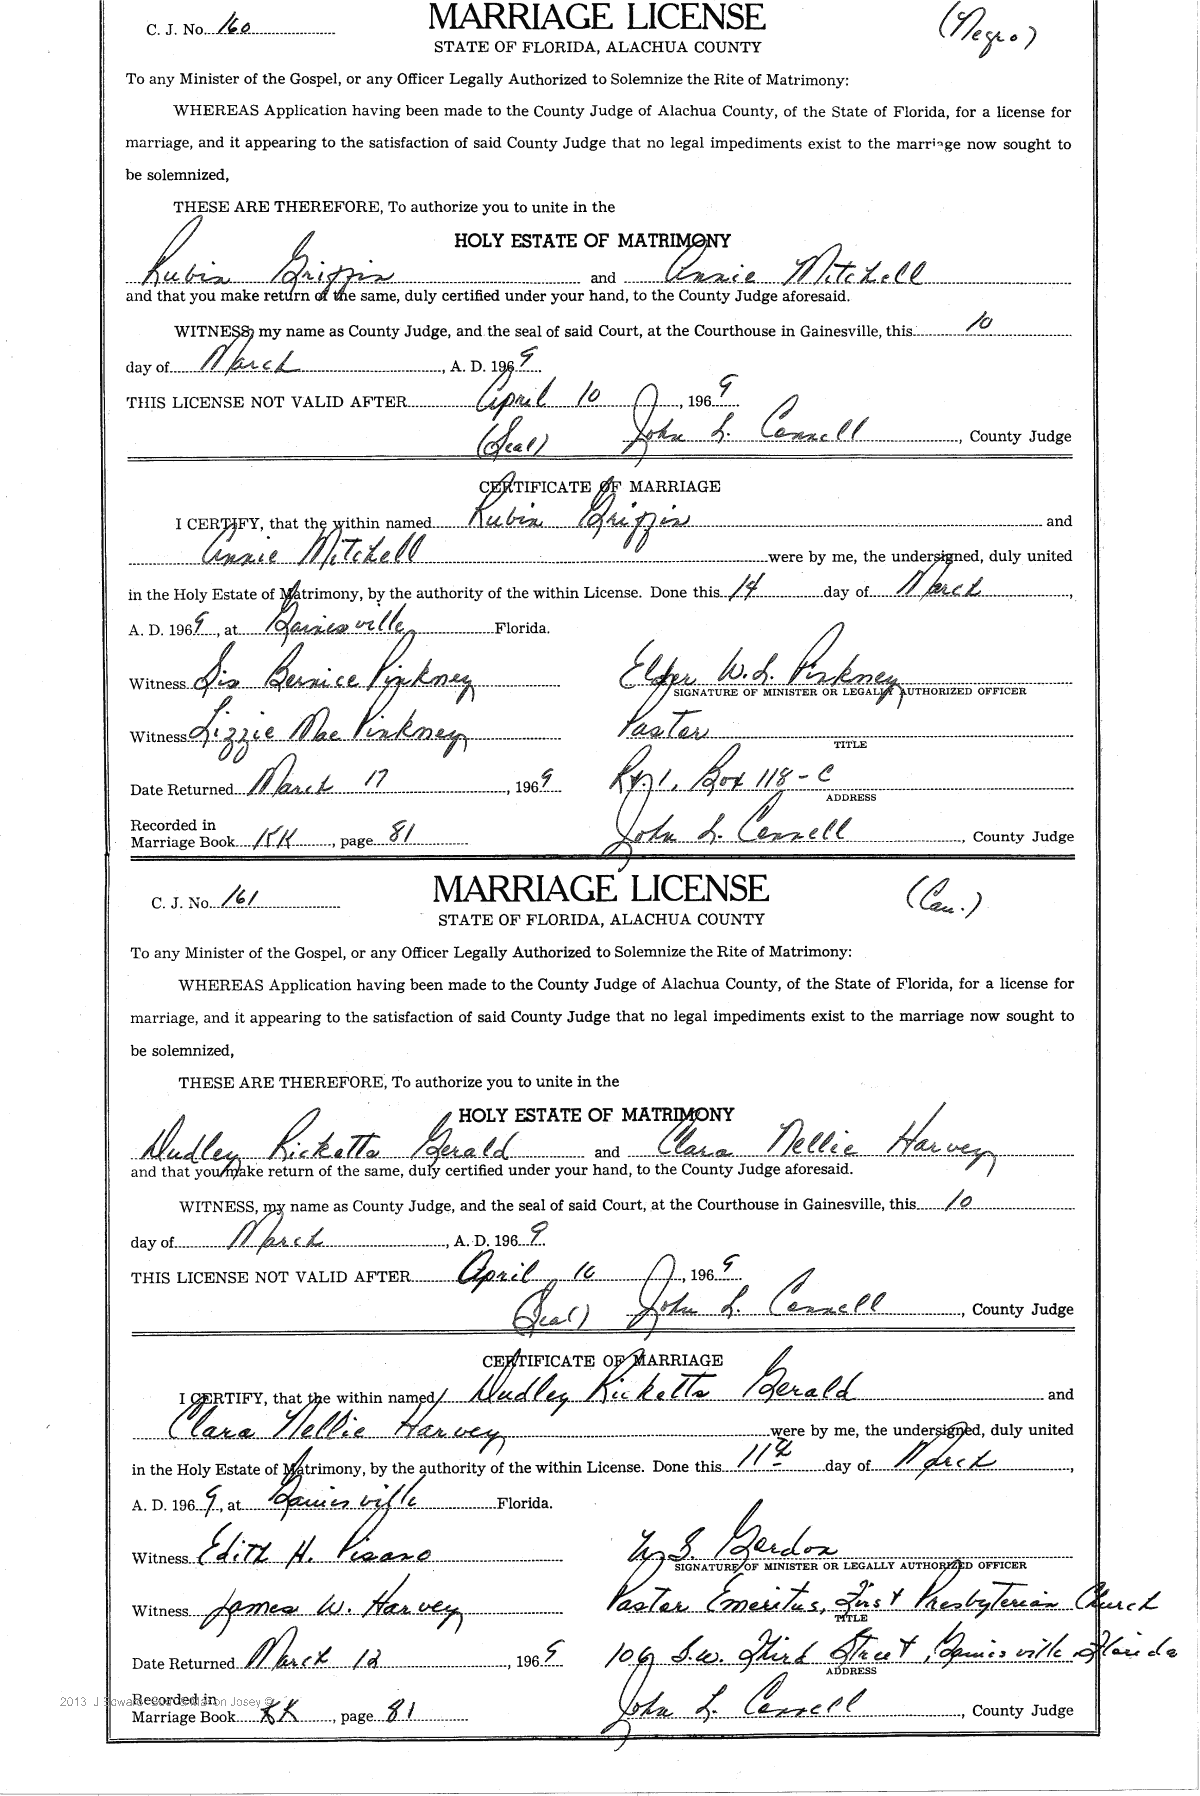 C. J. No. 160
MARRIAGE LICENSE
(Negro)
STATE OF FLORIDA, ALACHUA COUNTY
To any Minister of the Gospel, or any Officer Legally Authorized to Solemnize the Rite of Matrimony:
WHEREAS Application having been made to the County Judge of Alachua County, of the State of Florida, for a license for
marriage, and it appearing to the satisfaction of said County Judge that no legal impediments exist to the marriage now sought to
be solemnized,
THESE ARE THEREFORE, To authorize you to unite in the
HOLY ESTATE OF MATRIMONY
Rubin Griffin and Annie Mitchell
and that you make return of the same, duly certified under your hand, to the County Judge aforesaid.
WITNESS, my name as County Judge, and the seal of said Court, at the Courthouse in Gainesville, this 10
day of March, A. D. 1969
THIS LICENSE NOT VALID AFTER April 10, 1969
(Seal) John L. Connell, County Judge
CERTIFICATE OF MARRIAGE
I CERTIFY, that the within named Rubin Griffin and
Annie Mitchell were by me, the undersigned, duly united
in the Holy Estate of Matrimony, by the authority of the within License. Done this 14 day of March,
A. D. 1969, at Gainesville Florida.
Witness Sis Bernice Pinkney Elder W. L. Pinkney
SIGNATURE OF MINISTER OR LEGALLY AUTHORIZED OFFICER
Witness Lizzie Mae Pinkney Pastor
TITLE
Date Returned March 17, 1969 Rt. 1, Box 118-C
ADDRESS
Recorded in
Marriage Book KK, page 81 John L. Connell, County Judge
C. J. No. 161
MARRIAGE LICENSE
(Cau.)
STATE OF FLORIDA, ALACHUA COUNTY
To any Minister of the Gospel, or any Officer Legally Authorized to Solemnize the Rite of Matrimony:
WHEREAS Application having been made to the County Judge of Alachua County, of the State of Florida, for a license for
marriage, and it appearing to the satisfaction of said County Judge that no legal impediments exist to the marriage now sought to
be solemnized,
THESE ARE THEREFORE, To authorize you to unite in the
HOLY ESTATE OF MATRIMONY
Dudley Ricketts Gerald and Clara Nellie Harvey
and that you make return of the same, duly certified under your hand, to the County Judge aforesaid.
WITNESS, my name as County Judge, and the seal of said Court, at the Courthouse in Gainesville, this 10
day of March, A. D. 1969.
THIS LICENSE NOT VALID AFTER April 10, 1969
(Seal) John L. Connell, County Judge
CERTIFICATE OF MARRIAGE
I CERTIFY, that the within named Dudley Ricketts Gerald and
Clara Nellie Harvey were by me, the undersigned, duly united
in the Holy Estate of Matrimony, by the authority of the within License. Done this 11th day of March,
A. D. 1969, at Gainesville Florida.
Witness Edith H. Pisano U. S. Gordon
SIGNATURE OF MINISTER OR LEGALLY AUTHORIZED OFFICER
Witness James W. Harvey Pastor Emeritus, First Presbyterian Church
TITLE
Date Returned March 12, 1969 106 S.W. Third Street, Gainesville Florida
ADDRESS
Recorded in
Marriage Book KK, page 81 John L. Connell, County Judge